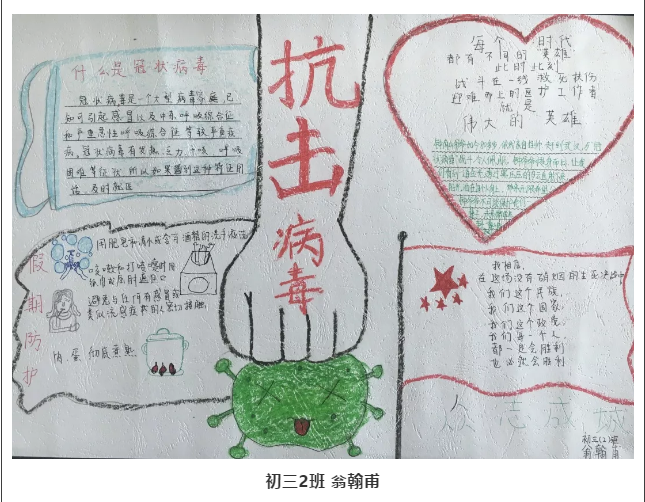 什么是冠状病毒
冠状病毒是一个大型病毒家庭,已
知可引起感冒以及中东呼吸综合征
和严重急性呼吸综合征等较严重疾
病,冠状病毒有发热、乏力、干咳、呼吸
困难等症状,所以如果留到这种症应用
诊、及时就医
抗击病毒
每个时代
都有不同的英雄
此时此刻
战斗在一线救死扶伤
迎难而上的医护工作者
就是
伟大的英雄
假期防护
用肥皂和清水或含有酒精的洗手液洗手
咳嗽和打喷嚏时用
避免与任何有感冒或
类似流感症状的人密切接触
肉、蛋彻底煮熟
我相信,
在这场没有硝烟的生死决战中
我们这个民族,
我们这个国家,
我们这个政党,
我们每一个人,
都一定会胜利
也必然会胜利
众志成城
初三(2)班
翁翰甫
初三2班 翁翰甫